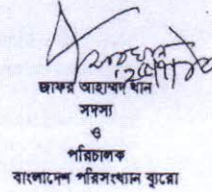 জাফর আহাম্মদ খান
সদস্য
ও
পরিচালক
বাংলাদেশ পরিসংখ্যান ব্যুরো